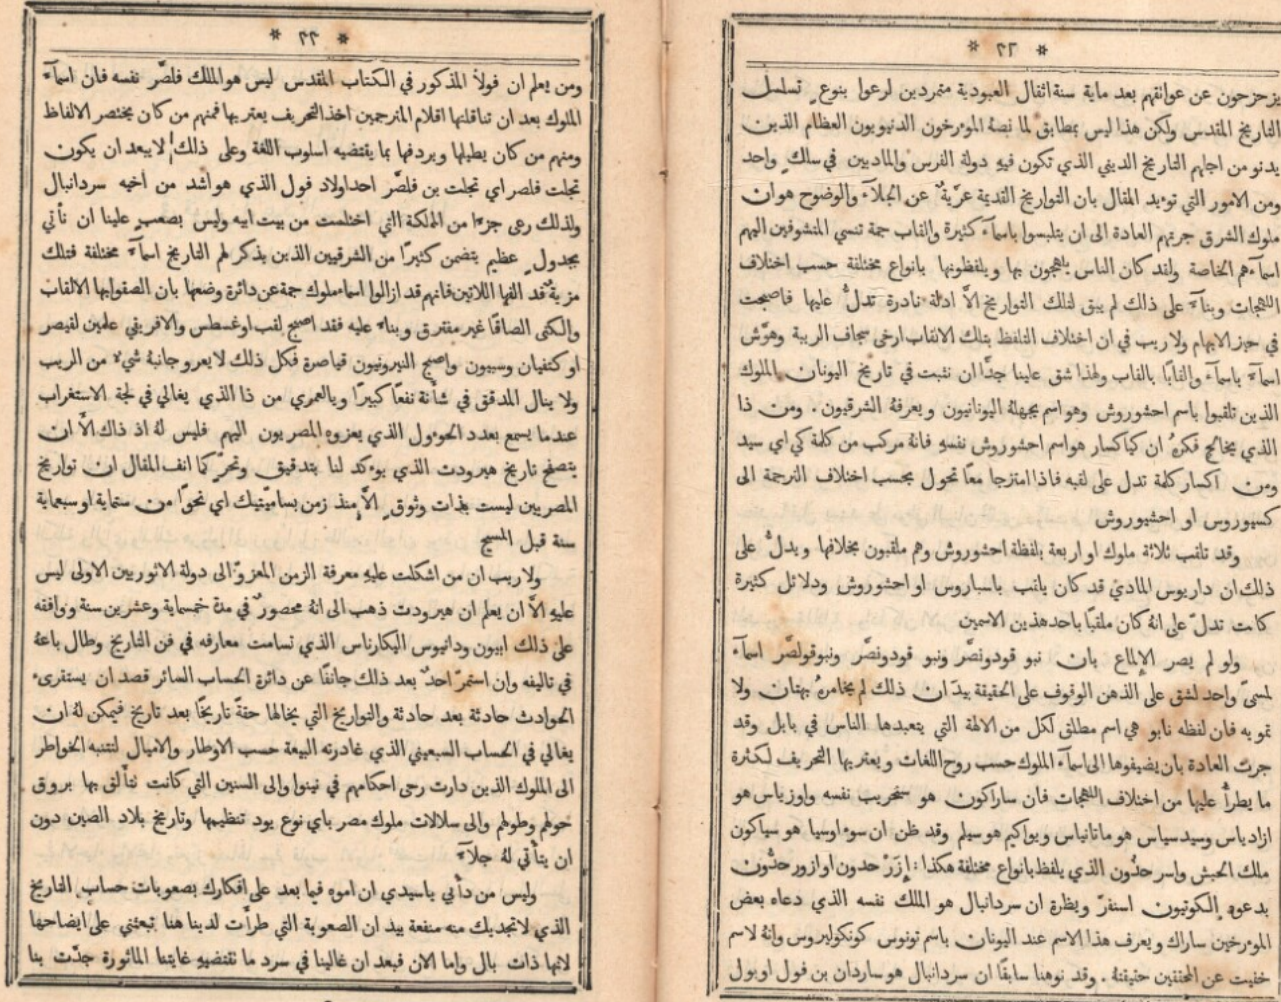 يزحزحون عن عواتقهم بعد ماية سنة اثقال العبودية متمردين لرعوا بنوع تسلسل
التاريخ المقدس ولكن هذا ليس بمطابق لما نصهُ الموءرخون الدنيويون العظام الذين
يدنو من اجلهم التاريخ الديني الذي تكون فيهِ دولة الفرس والماديين في سلكٍ واحد
ومن الامور التي توءيد المقال بان التواريخ القديمة عريّةٌ عن الجلآء والوضوح هو ان
ملوك الشرق جرتهم العادة الى ان يتلبسوا باسمآء كثيرة والقاب جمة تنسي المتشوفين اليهم
اسمآءهم الخاصة ولقد كان الناس يلهجون بها ويلفظونها بانواع مختلفة حسب اختلاف
اللهجات وبنآءً على ذلك لم يبق لتلك التواريخ الاَّ ادلة نادرة تدلُّ عليها فاصبحت
في حيز الابهام ولا ريب في ان اختلاف التلفظ بتلك الالقاب ارخى سجاف الريبة وهوَّش
اسمآءً باسمآء والقابًا بالقاب ولهذا شق علينا جدًّا ان نثبت في تاريخ اليونان الملوك
الذين تلقبوا باسم احشوروش وهو اسم يجهلهُ اليونانيون ويعرفهُ الشرقيون. ومن ذا
الذي يخالج فكرهُ ان كياكسار هو اسم احشوروش نفسهِ فانهُ مركب من كلمة كي اي سيد
ومن اكسار كلمة تدل على لقبه فاذا امتزجا معًا تحول بحسب اختلاف الترجمة الى
كسيوروس او احشيوروش
وقد تلقب ثلاثة ملوك او اربعة بلفظة احشوروش وهم ملقبون بخلافها ويدلُّ على
ذلك ان داريوس الماديَّ قد كان يلقب باسباروس او احشوروش ودلائل كثيرة
كانت تدلّ على انهُ كان ملقبًا باحد هذين الاسمين
ولو لم يصر الإلماع بان نبو قودونصَّر ونبو قودونصَّر ونبوقولصَّر اسمآء
لمسمّى واحد لشق على الذهن الوقوف على الحقيقة بيدَ ان ذلك لم يخامرهُ بهتان ولا
تمويه فان لفظه نابو هي اسم مطلق لكل من الالهة التي يتعبدها الناس في بابل وقد
جرت العادة بان يضيفوها الى اسمآء الملوك حسب روح اللغات ويعتريها التحريف لكثرة
ما يطرأُ عليها من اختلاف اللهجات فان ساراكون هو سنحريب نفسه واوزياس هو
ازادياس وسيدسياس هو ماتانياس ويواكيم هو سيلم وقد ظن ان سوءاوسيا هو سباكون
ملك الحبش واسر حدُون الذي يلفظ بانواع مختلفة هكذا: إِزَرْ حدون او ازور حدُّون
يدعوهِ الكوتيون اسنفرّ وبظرة ان سردانبال هو الملك نفسه الذي دعاه بعض
الموءرخين ساراك ويعرف هذا الاسم عند اليونان باسم تونوس كونكوليروس وانهُ لاسم
خفيت عن المحققين حقيقتهُ. وقد نوهنا سابقًا ان سردانبال هو ساردان بن فول او بول
ومن يعلم ان فولاً المذكور في الكتاب المقدس ليس هو الملك فلصّر نفسه فان اسمآء
الملوك بعد ان تناقلتها اقلام المترجمين اخذ التحريف يعتريها فمنهم من كان يختصر الالفاظ
ومنهم من كان يطيلها ويردفها بما يقتضيه اسلوب اللغة وعلى ذلك لا يبعد ان يكون
تجلت فلصر اي تجلت بن فلصَّر احد اولاد فول الذي هو اشد من اخيه سردانبال
ولذلك رعى جزءًا من المملكة التي اختلست من بيت ابيه وليس بصعبٍ علينا ان نأتي
بجدولٍ عظيم يتضمن كثيرًا من الشرقيين الذين يذكر لهم التاريخ اسمآءً مختلفة فتلك
مزيةٌ قد الفها اللاتين فانهم قد ازالوا اسماء ملوك جمة عن دائرة وضعها بان الصقوا بها الالقاب
والكنى الصاقًا غير مفترق وبناءً عليه فقد اصبح لقب اوغسطس والافريقي علمين لقيصر
او كتفيان وسيبون واصبح النيرونيون قياصرة فكل ذلك لا يعرو جانبهُ شيءٌ من الريب
ولا ينال المدقق في شأنه نفعًا كبيرًا ويا لعمري من ذا الذي يغالي في لجة الاستغراب
عندما يسمع بعدد الحوءول الذي يعزوه المصريون اليهم فليس لهُ اذ ذاك الاَّ ان
يتصفح تاريخ هيرودت الذي يوءكد لنا بتدقيق وتحرٍّ كما انف المقال ان تواريخ
المصريين ليست بذات وثوقٍ الاَّ منذ زمن بساميتيك اي نحوًا من ستماية او سبعماية
سنة قبل المسيح
ولا ريب ان من اشكلت عليهِ معرفة الزمن المعزوّ الى دولة الاثوريين الاولى ليس
عليهِ الاَّ ان يعلم ان هيرودت ذهب الى انهُ محصورٌ في مدة خمسماية وعشرين سنة ووافقه
على ذلك ابيون ودانيوس اليكارناس الذي تسامت معارفه في فن التاريخ وطال باعهُ
في تاليفه وان استمرّ احدٌ بعد ذلك جانفًا عن دائرة الحساب السائر قصد ان يستقرىء
الحوادث حادثة بعد حادثة والتواريخ التي يخالها حقةً تاريخًا بعد تاريخ فيمكن لهُ ان
يغالي في الحساب السبعيني الذي غادرته البيعة حسب الاوطار والاميال لتتنبه الخواطر
الى الملوك الذين دارت رحى احكامهم في نينوا والى السنين التي كانت تتأَلق بها بروق
حولهم وطولهم والى سلالات ملوك مصر باي نوع يود تنظيمها وتاريخ بلاد الصين دون
ان يتأَتي لهُ جلآء
وليس من دأبي ياسيدي ان اموه فيما بعد على افكارك بصعوبات حساب التاريخ
الذي لا تجديك منه منفعة بيد ان الصعوبة التي طرأَت لدينا هنا تبعثني على ايضاحها
لانها ذات بال واما الان فبعد ان غالينا في سرد ما تقتضيهِ غايتنا الماثورة جدّت بنا